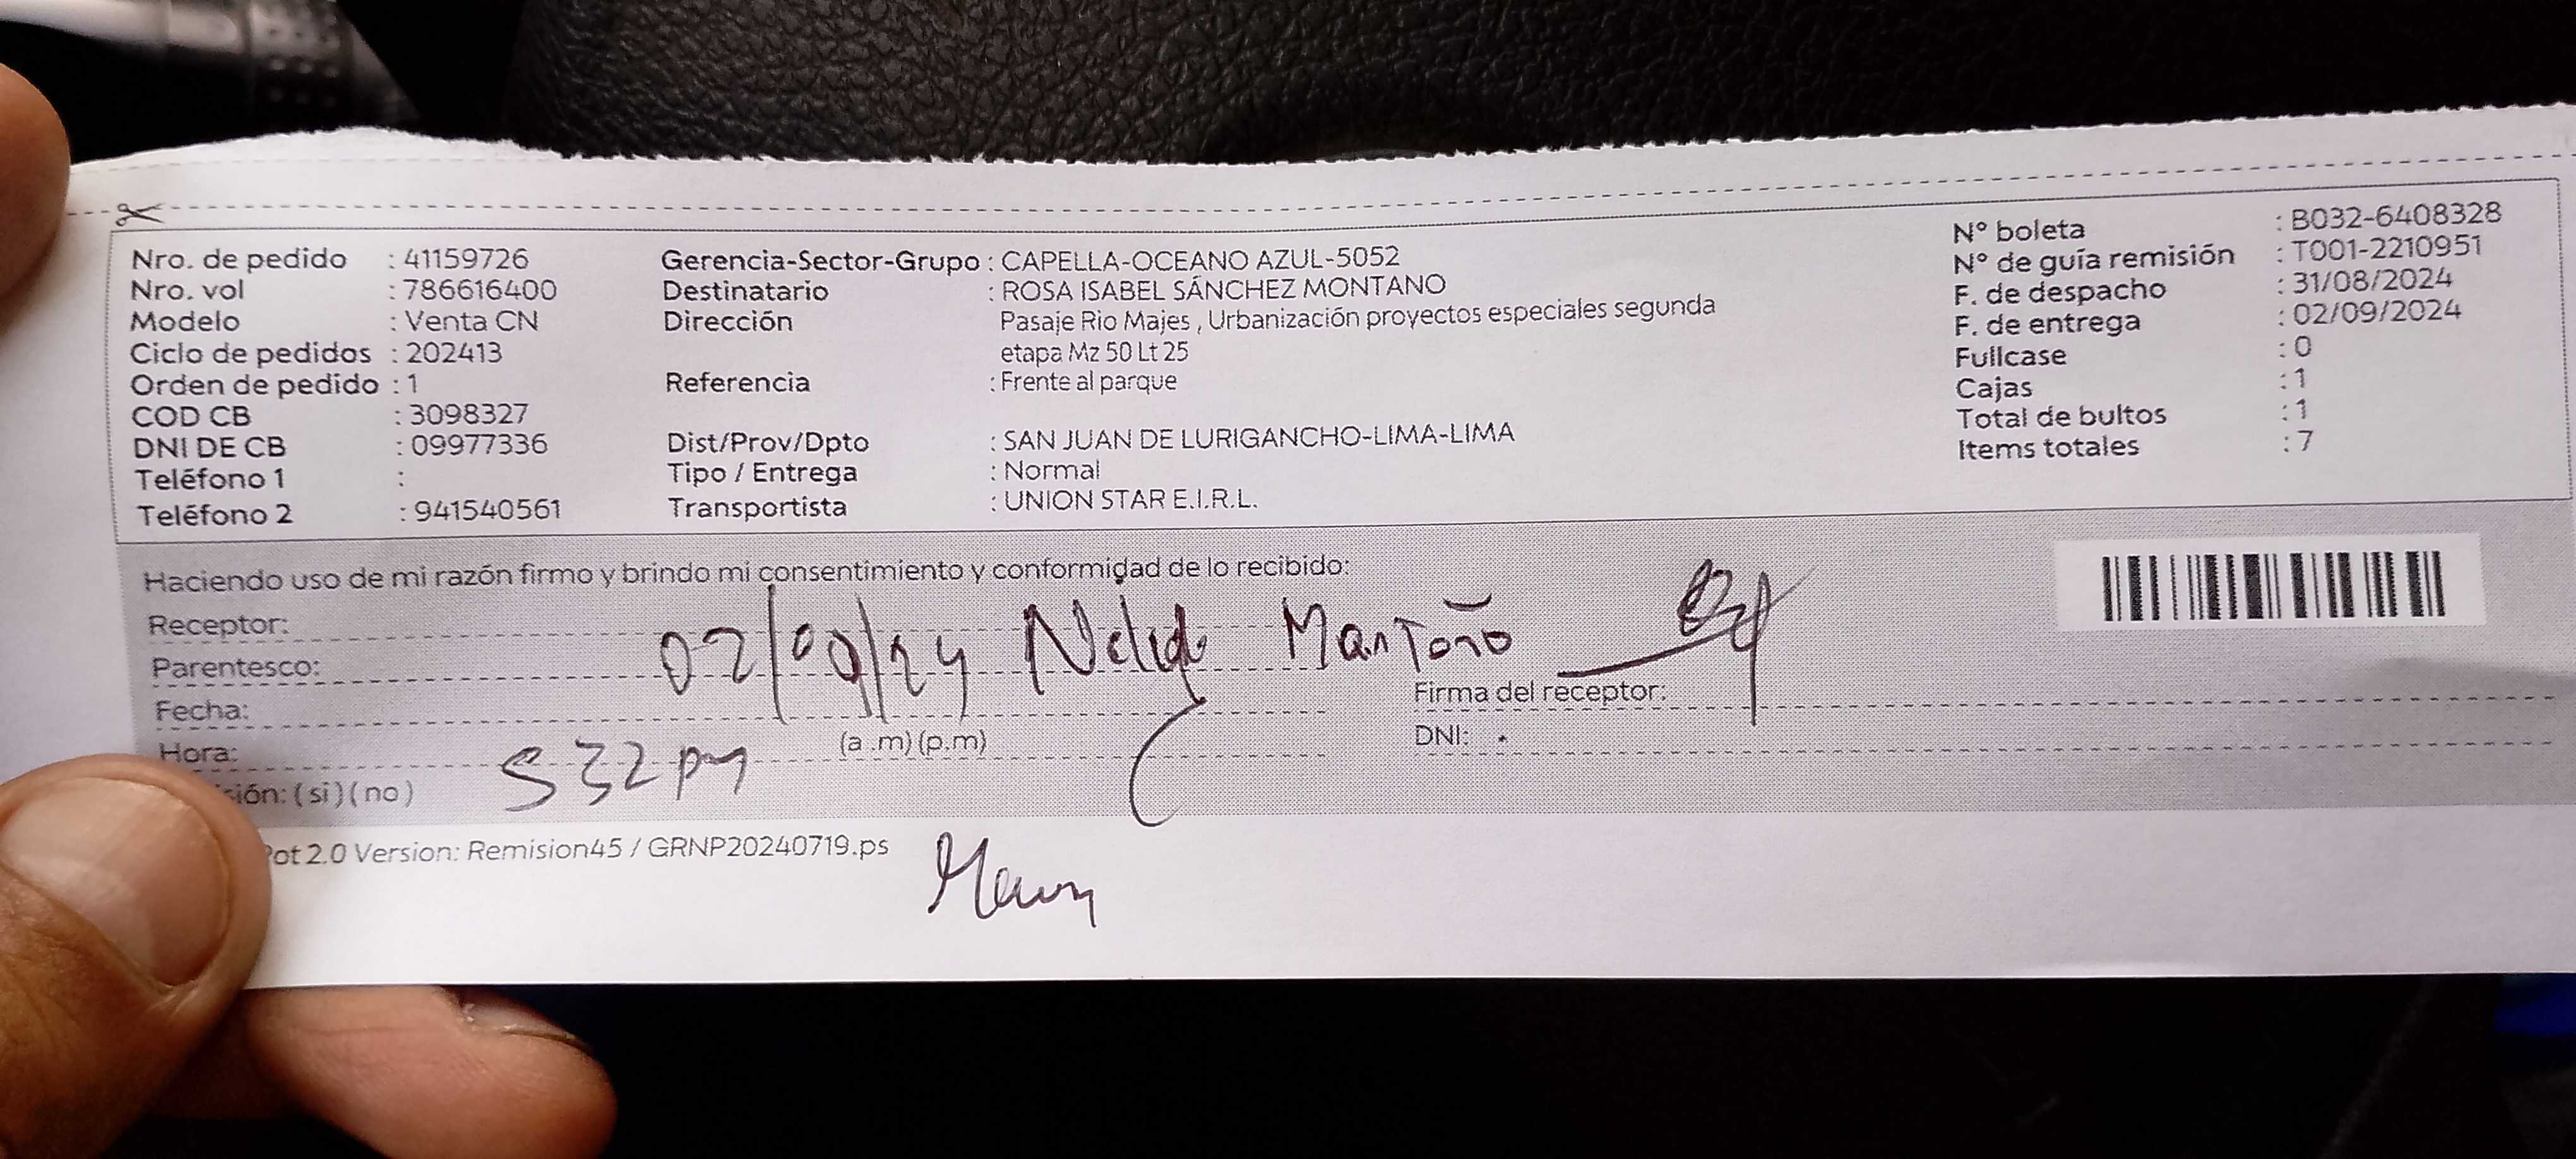 Nro. de pedido : 41159726
Nro. vol : 786616400
Modelo : Venta CN
Ciclo de pedidos : 202413
Orden de pedido : 1
COD CB : 3098327
DNI DE CB : 09977336
Teléfono 1 :
Teléfono 2 : 941540561
Gerencia-Sector-Grupo : CAPELLA-OCEANO AZUL-5052
Destinatario : ROSA ISABEL SÁNCHEZ MONTANO
Dirección Pasaje Rio Majes , Urbanización proyectos especiales segunda
etapa Mz 50 Lt 25
Referencia : Frente al parque
Dist/Prov/Dpto : SAN JUAN DE LURIGANCHO-LIMA-LIMA
Tipo / Entrega : Normal
Transportista : UNION STAR E.I.R.L.
N° boleta : B032-6408328
N° de guía remisión : T001-2210951
F. de despacho : 31/08/2024
F. de entrega : 02/09/2024
Fullcase : 0
Cajas : 1
Total de bultos : 1
Items totales : 7
Haciendo uso de mi razón firmo y brindo mi consentimiento y conformidad de lo recibido:
Receptor:
02/09/24 Nelida Mantoño
Parentesco:
Firma del receptor:
Fecha:
(a .m) (p.m)
DNI:
Hora: 532 pm
ión: (si) (no)
ot 2.0 Version: Remision45 / GRNP20240719.ps